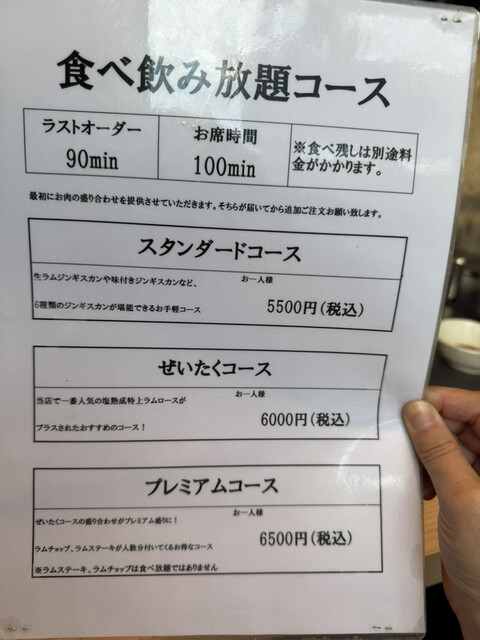 食べ飲み放題コース
ラストオーダー
90min
お席時間
100min
※食べ残しは別途料
金がかかります。
最初にお肉の盛り合わせを提供させていただきます。そちらが届いてから追加ご注文お願い致します。
スタンダードコース
生ラムジンギスカンや味付きジンギスカンなど、
お一人様
6種類のジンギスカンが堪能できるお手軽コース
5500円(税込)
ぜいたくコース
当店で一番人気の塩熟成特上ラムロースが
お一人様
プラスされたおすすめのコース！
6000円(税込)
プレミアムコース
ぜいたくコースの盛り合わせがプレミアム盛りに！
お一人様
ラムチョップ、ラムステーキが人数分付いてくるお得なコース
6500円(税込)
※ラムステーキ、ラムチョップは食べ放題ではありません